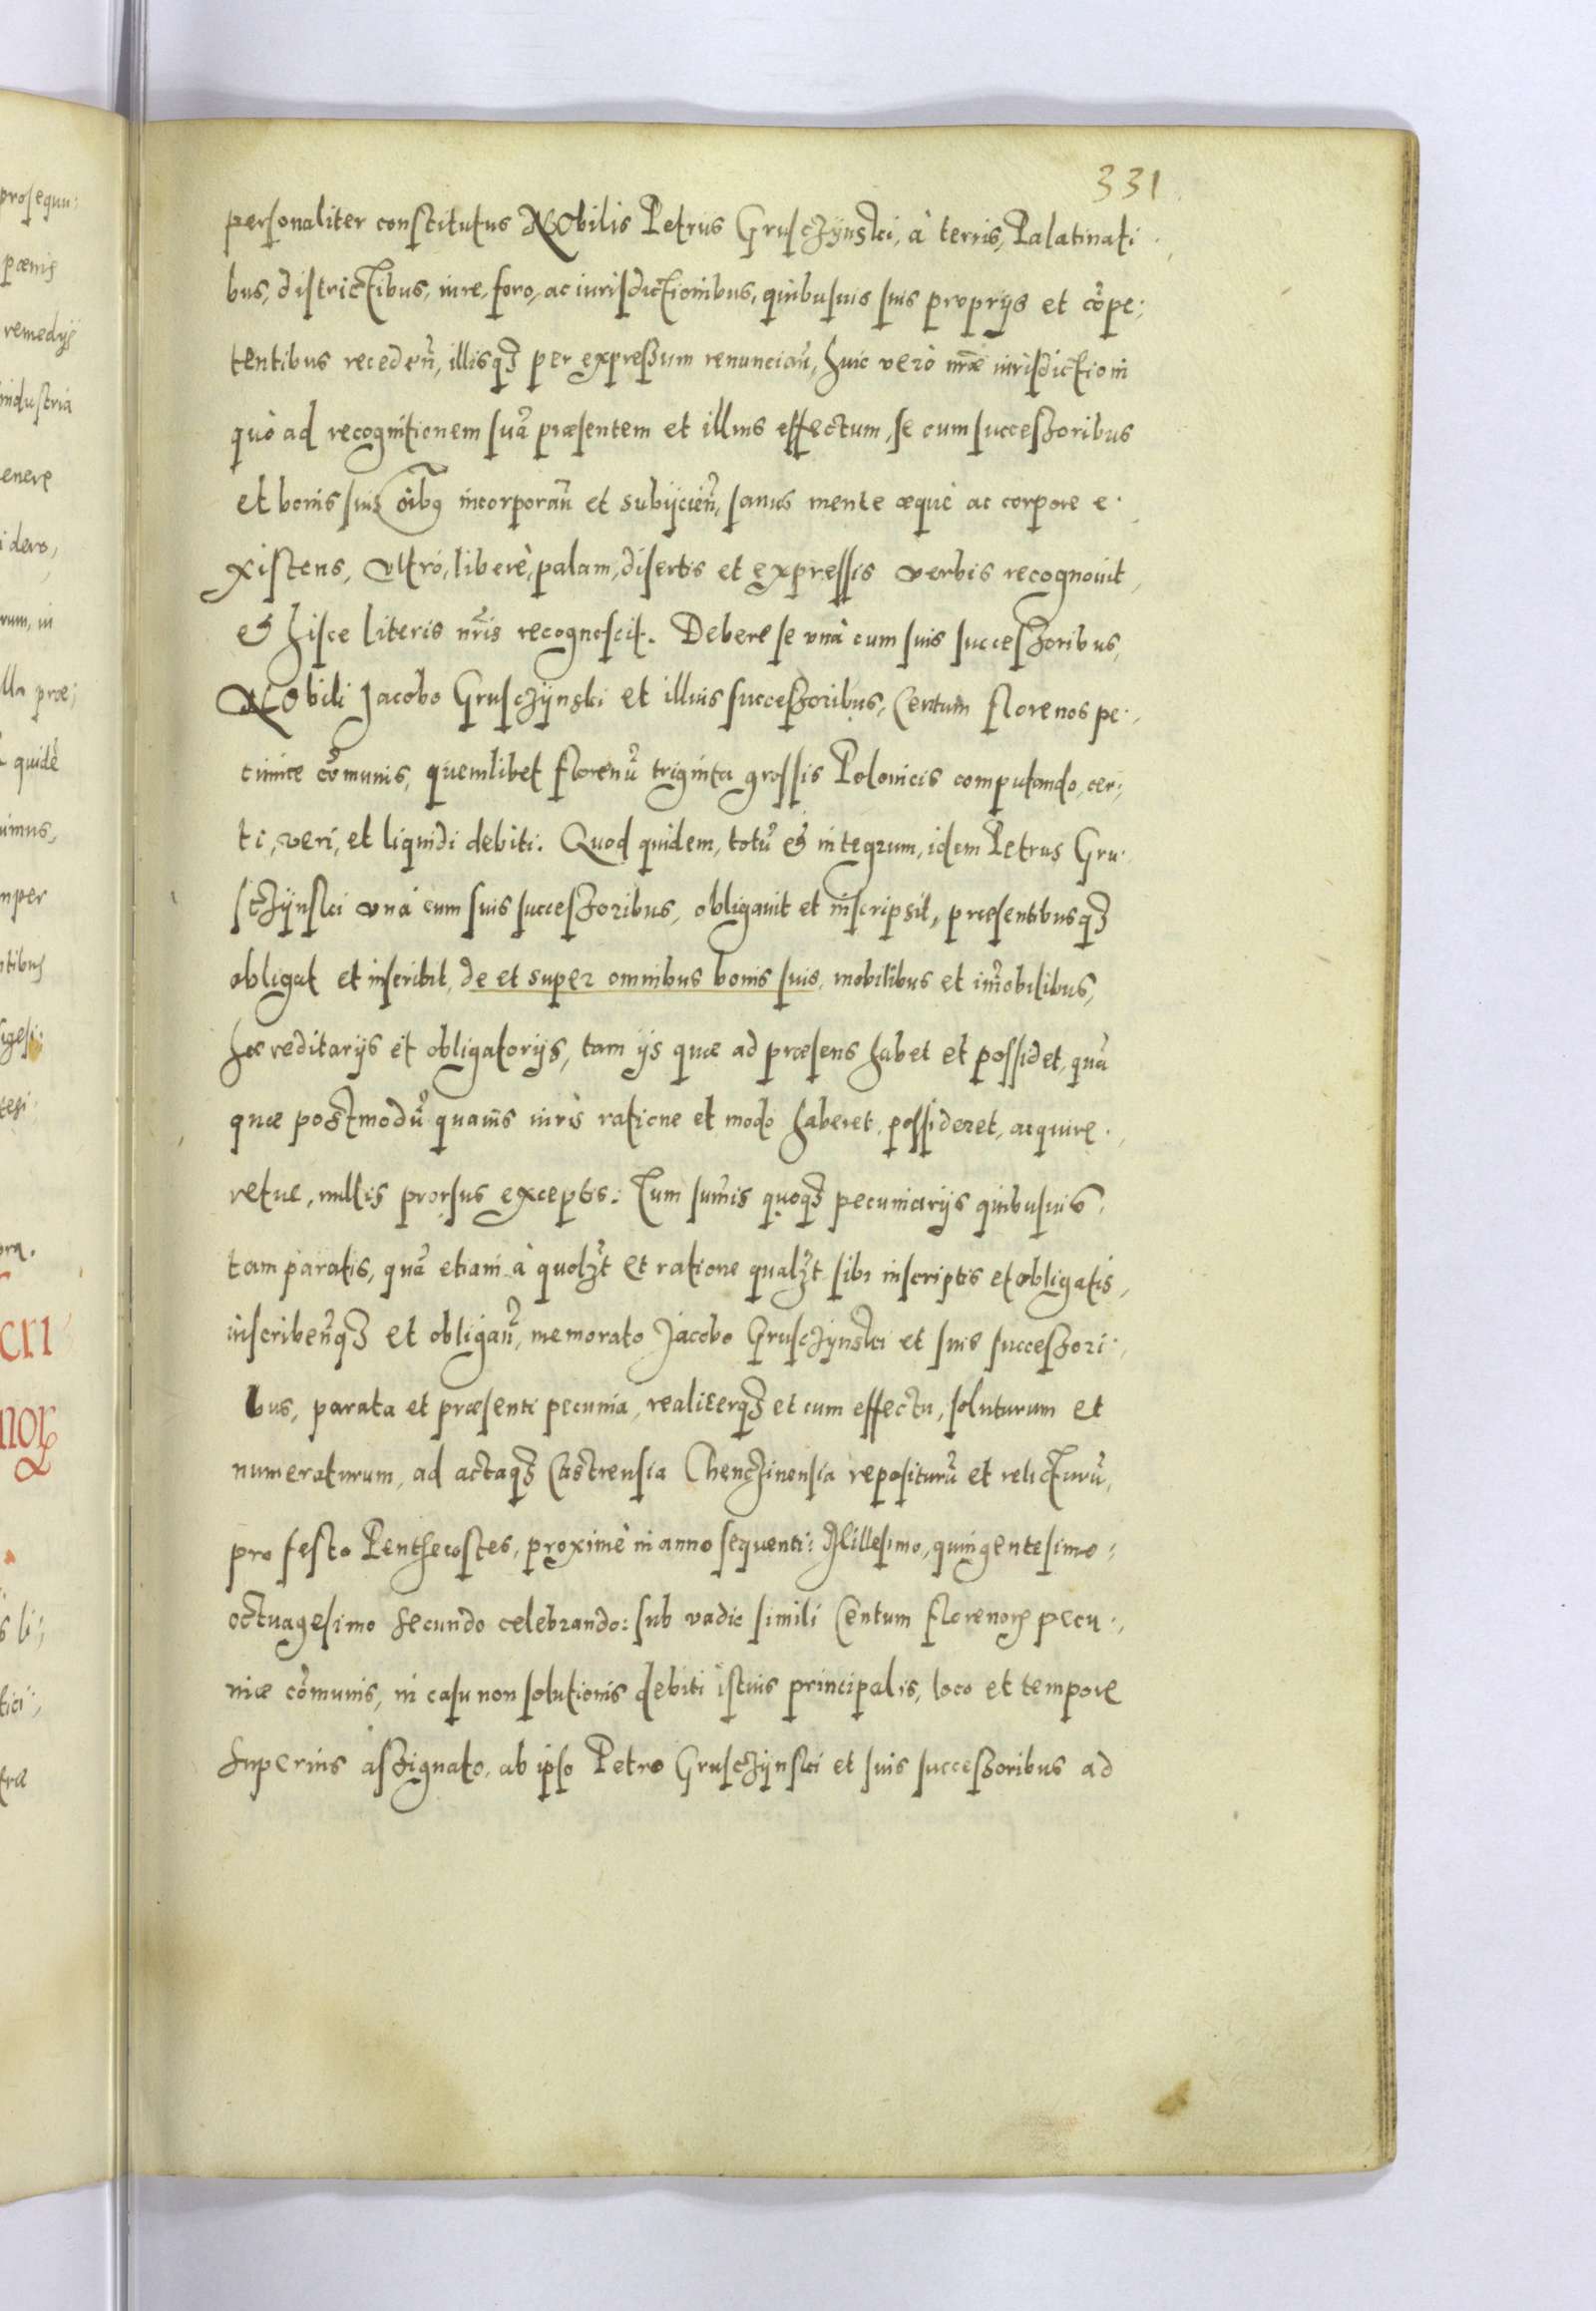 331
personaliter constitutus Nobilis Petrus Gruscżÿnski, à terris, Palatinati
bus, districtibus, iure, foro, ac iurisdictionibus, quibusuis suis proprijs et cõpe:
tentibus recedeñ, illisqȝ per expressum renunciañ, huic verò nr̃æ iurisdictioni
quò ad recognitionem suã præsentem et illius effectum, se cum successoribus
et bonis suis oĩbꝰ incorporañ et subijcieñ, sanus mente æquè ac corpore e.
xistens, vltrò, liberè, palam, disertis et expressis verbis recognouit,
& hisce literis nr̃is recognoscit. Debere se vnà cum suis successoribus,
Nobili Jacobo Gruscżÿnski et illius successoribus, Centum florenos pe.,
cuniæ cõmunis, quemlibet florenũ triginta grossis Polonicis computando, cer.,
ti, veri, et liquidi debiti. Quod quidem, totũ & integrum, idem Petrus Gru.
scżÿnski vnà cum suis successoribus, obligauit et inscripsit, præsentibusqȝ
obligat et inscribit, de et super omnibus bonis suis, mobilibus et im̃obilibus,
hæreditarijs et obligatorijs, tam ijs quæ ad præsens habet et possidet, quã
quæ postmodũ quauis iuris ratione et modo haberet, possideret, acquire.,
retue, nullis prorsus exceptis: Tum sum̃is quoqȝ pecuniarijs quibusuis,
tam paratis, quã etiam à quolȝt et ratione qualȝt sibi inscriptis et obligatis,
inscribeñqȝ et obligañ, memorato Jacobo Gruscżÿnski et suis successori.,
bus, parata et præsenti pecunia, realiterqȝ et cum effectu, soluturum et
numeraturum, ad actaqȝ Castrensia Chencżinensia repositurũ et relicturũ,
pro festo Penthecostes, proximè in anno sequenti: Millesimo, quingentesimo:
octuagesimo secundo celebrando: sub vadio simili Centum florenoꝝ pecu.,
niæ cõmunis, in casu non solutionis debiti istius principalis, loco et tempore
superius assignato, ab ipso Petro Gruscżÿnski et suis successoribus ad